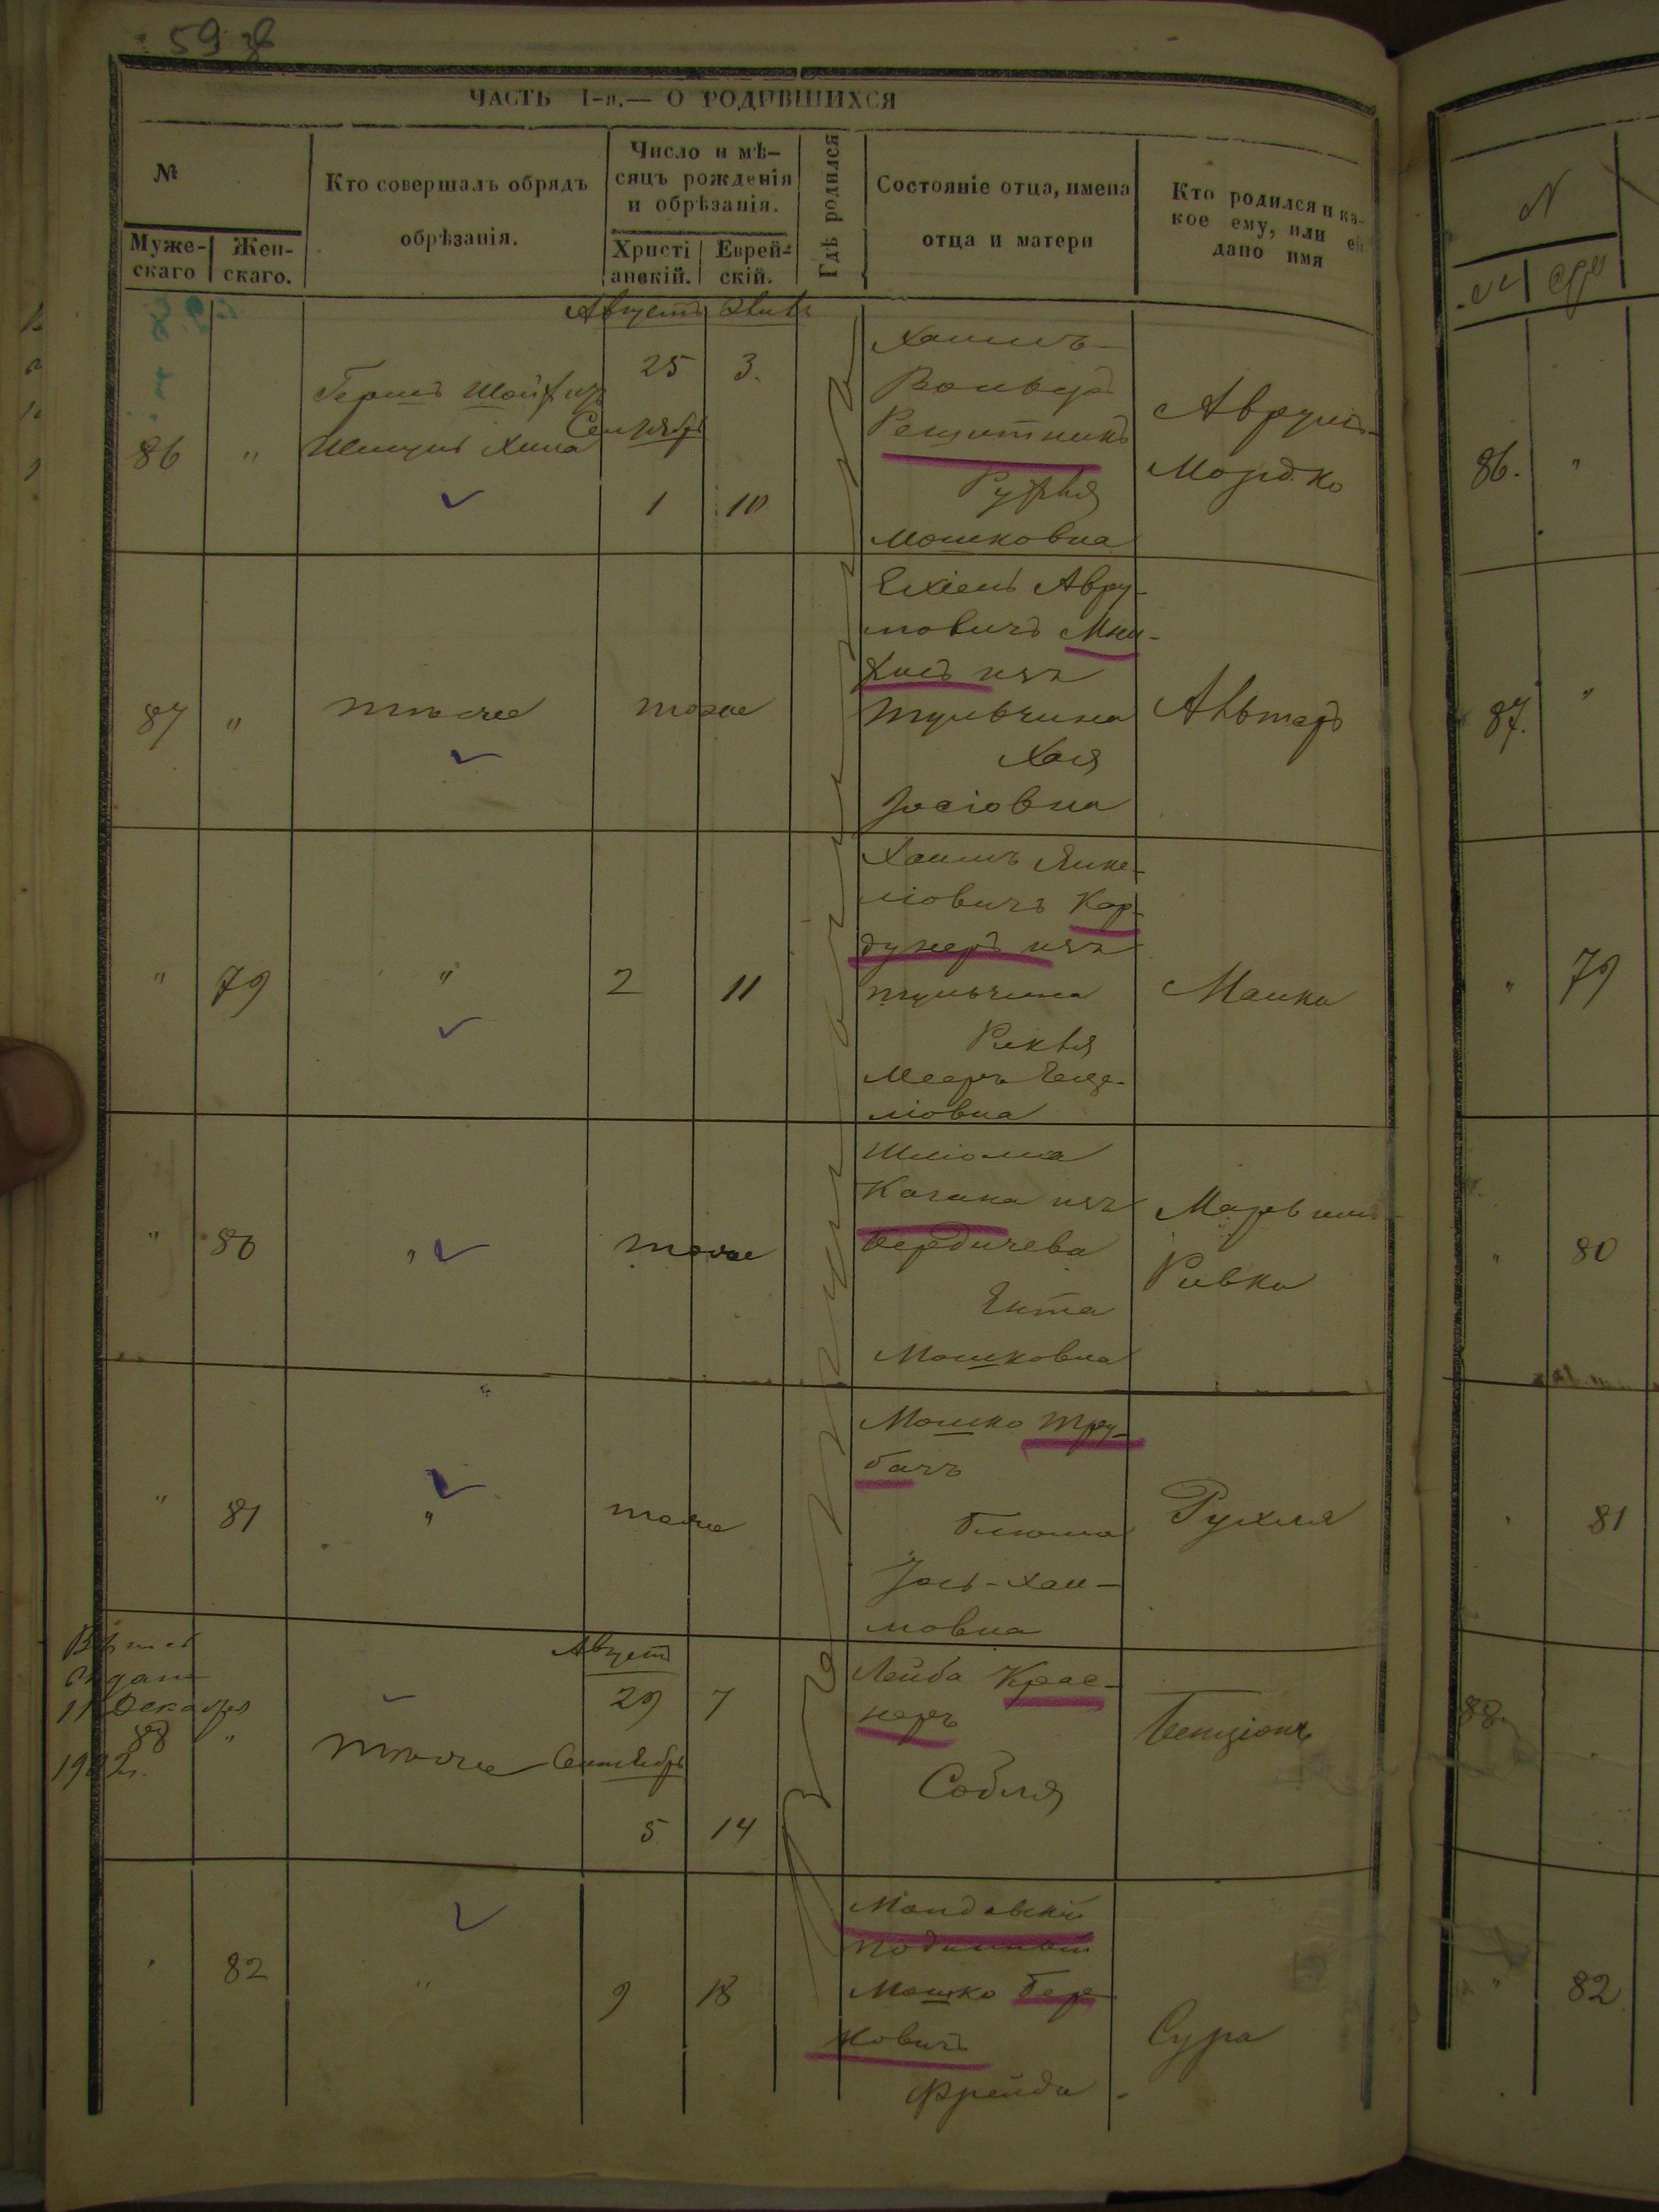 59
ЧАСТЬ I-я.— О РОДИВШИХСЯ
№
Муже-
скаго
Жен-
скаго.
Кто совершалъ обрядъ
обрѣзанія.
Число и мѣ-
сяцъ рожденія
и обрѣзанія.
Христі
анскій.
Еврей-
скій.
Гдѣ родился
Состояніе отца, имена
отца и матери
Кто родился и ка-
кое ему, или ей
дано имя
Августъ
86 "
Шмуль
25 3.
Сентябрь
1 10
Хаимъ-
Вольфъ
Решитникъ
Рухля
Мошковна
Аврумъ-
Мордко
87 "
тѣ же
тоже
Ехіель Авру-
мовичъ
изъ
Тульчина
Хая
Іосіовна
Альтеръ
" 79
"
2 11
Хаимъ Янке-
ліовичъ Кор-
дунеръ изъ
Тульчина
Мееръ
ліовна
Малка
" 80
"
тоже
Шліома
Кагана изъ
Бердичева
Ента
Мошковна
Ривка
" 81
"
тоже
Мошко Тру-
бачъ
Блюма
Іось-Хаи-
мовна
Рухля
11 Декабря
88 "
тѣ же
Августъ
29 7
Сентябрь
5 14
Лейба Крас-
неръ
Собля
Бенціонъ
" 82
"
9 18
Молдавскій
подданный
Мошко Бер-
ковичъ
Фрейда
Сура
86. "
87. "
" 79
" 80
" 81
88.
" 82